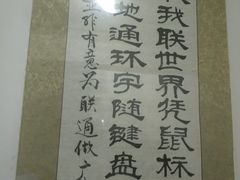 我联世界凭鼠标
地通环宇随键盘
并非有意为联通做广